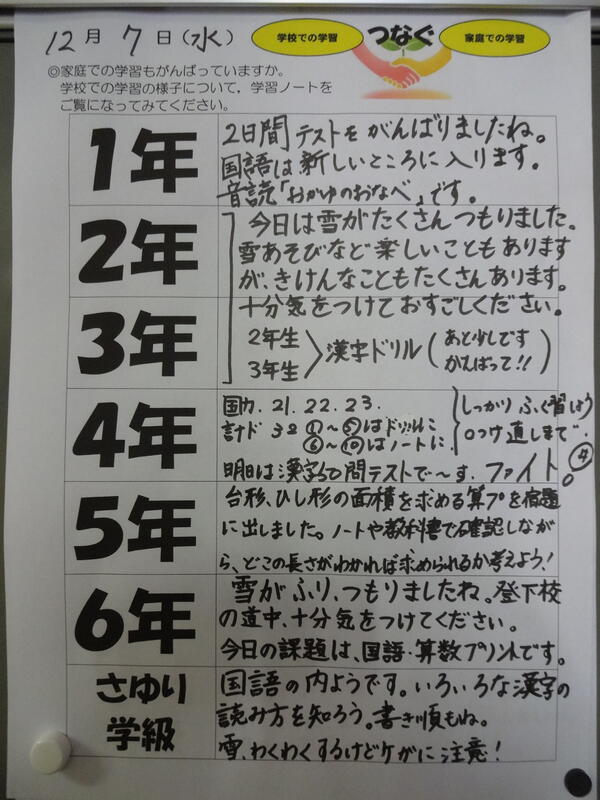 12月7日(水)
学校での学習 つなぐ 家庭での学習
◎家庭での学習もがんばっていますか。
学校での学習の様子について、学習ノートを
ご覧になってみてください。
1年
2日間テストをがんばりましたね。
国語は新しいところに入ります。
音読「おかゆのおなべ」です。
2年
3年
今日は雪がたくさんつもりました。
雪あそびなど楽しいこともあります
が、きけんなこともたくさんあります。
十分気をつけておすごしください。
2年生
3年生
漢字ドリル
(あと少しです
がんばって!!)
4年
国力.21.22.23.
計ド 38 ①~⑤はドリルに
⑥~⑩はノートに
しっかりふく習しよう
○つけ直しまで
明日は漢字50問テストで~す.ファイト。
5年
台形、ひし形の面積を求める算プを宿題
に出しました。ノートや教科書で確認しなが
ら、どこの長さがわかれば求められるか考えよう!
6年
雪がふり、つもりましたね。登下校
の道中、十分気をつけてください。
今日の課題は、国語・算数プリントです。
さゆり
学級
国語の内ようです。いろいろな漢字の
読み方を知ろう。書き順もね。
雪、わくわくするけどケガに注意!